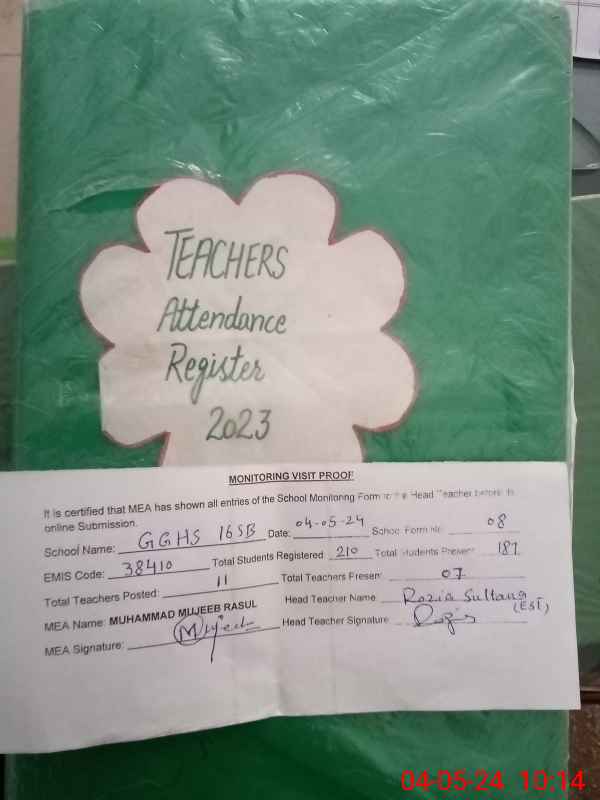 TEACHERS
Attendance
Register
2023
MONITORING VISIT PROOF
It is certified that MEA has shown all entries of the School Monitoring Form to the Head Teacher before its
online Submission.
School Name: GGHS 16SB Date: 04-05-24 School Form No: 08
EMIS Code: 38410 Total Students Registered 210 Total Students Present 187
Total Teachers Posted: 11 Total Teachers Present 07
MEA Name: MUHAMMAD MUJEEB RASUL Head Teacher Name Rozia Sultana
(EST)
MEA Signature: Mujeeb Head Teacher Signature
04-05-24 10:14